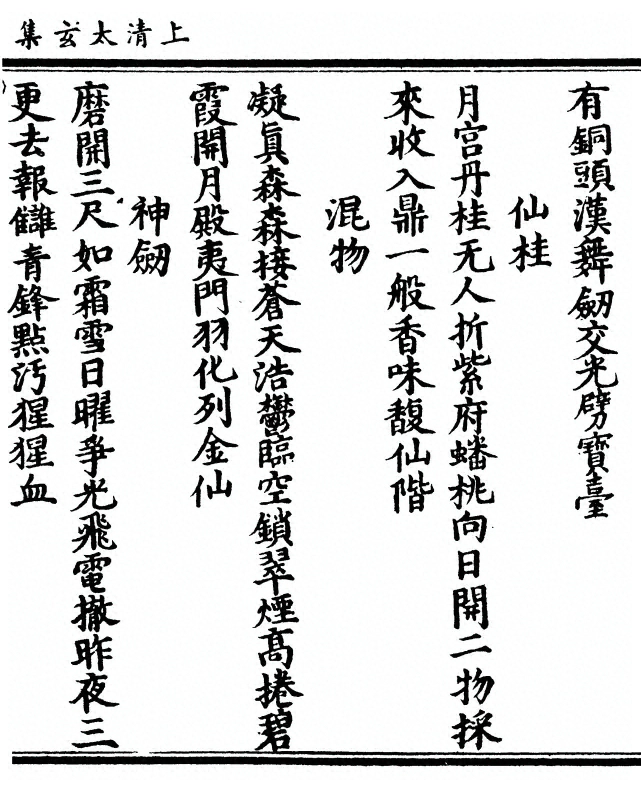 上清太玄集
有銅頭漢舞劒交光劈寶臺
仙桂
月宮丹桂无人折紫府蟠桃向日開二物採
來收入鼎一般香味馥仙階
混物
凝眞森森接蒼天浩鬱臨空鎖翠煙高捲碧
霞開月殿夷門羽化列金仙
神劒
磨開三尺如霜雪日曜爭光飛電撤昨夜三
更去報讎青鋒點汚猩猩血